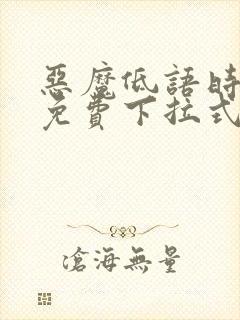 惡魔低語時
免費下拉式
滄海無量